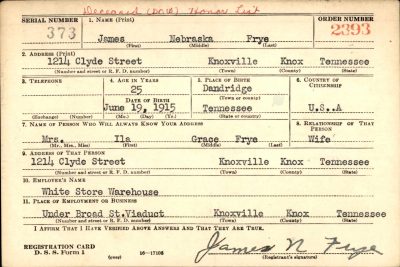 Deceased (DOW) Honor List
SERIAL NUMBER 1. NAME (Print) ORDER NUMBER
373 James Nebraska Frye 2393
(First) (Middle) (Last)
2. ADDRESS (Print)
1214 Clyde Street Knoxville Knox Tennessee
(Number and street or R. F. D. number) (Town) (County) (State)
3. TELEPHONE 4. AGE IN YEARS 5. PLACE OF BIRTH 6. COUNTRY OF CITIZENSHIP
25 Dandridge
DATE OF BIRTH (Town or county)
June 19, 1915 Tennessee U.S.A
(Exchange) (Number) (Mo.) (Day) (Yr.) (State or country)
7. NAME OF PERSON WHO WILL ALWAYS KNOW YOUR ADDRESS 8. RELATIONSHIP OF THAT PERSON
Mrs. Ila Grace Frye Wife
(Mr., Mrs., Miss) (First) (Middle) (Last)
9. ADDRESS OF THAT PERSON
1214 Clyde Street Knoxville Knox Tennessee
(Number and street or R. F. D. number) (Town) (County) (State)
10. EMPLOYER'S NAME
White Store Warehouse
11. PLACE OF EMPLOYMENT OR BUSINESS
Under Broad St.Viaduct Knoxville Knox Tennessee
(Number and street or R. F. D. number) (Town) (County) (State)
I AFFIRM THAT I HAVE VERIFIED ABOVE ANSWERS AND THAT THEY ARE TRUE.
REGISTRATION CARD
D. S. S. Form 1 (over) 16—17105 James N Frye
(Registrant's signature)